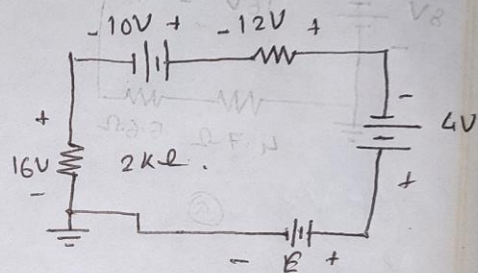 - 10V + - 12V +
+ -
16V 2kΩ. 4V
- +
- E +